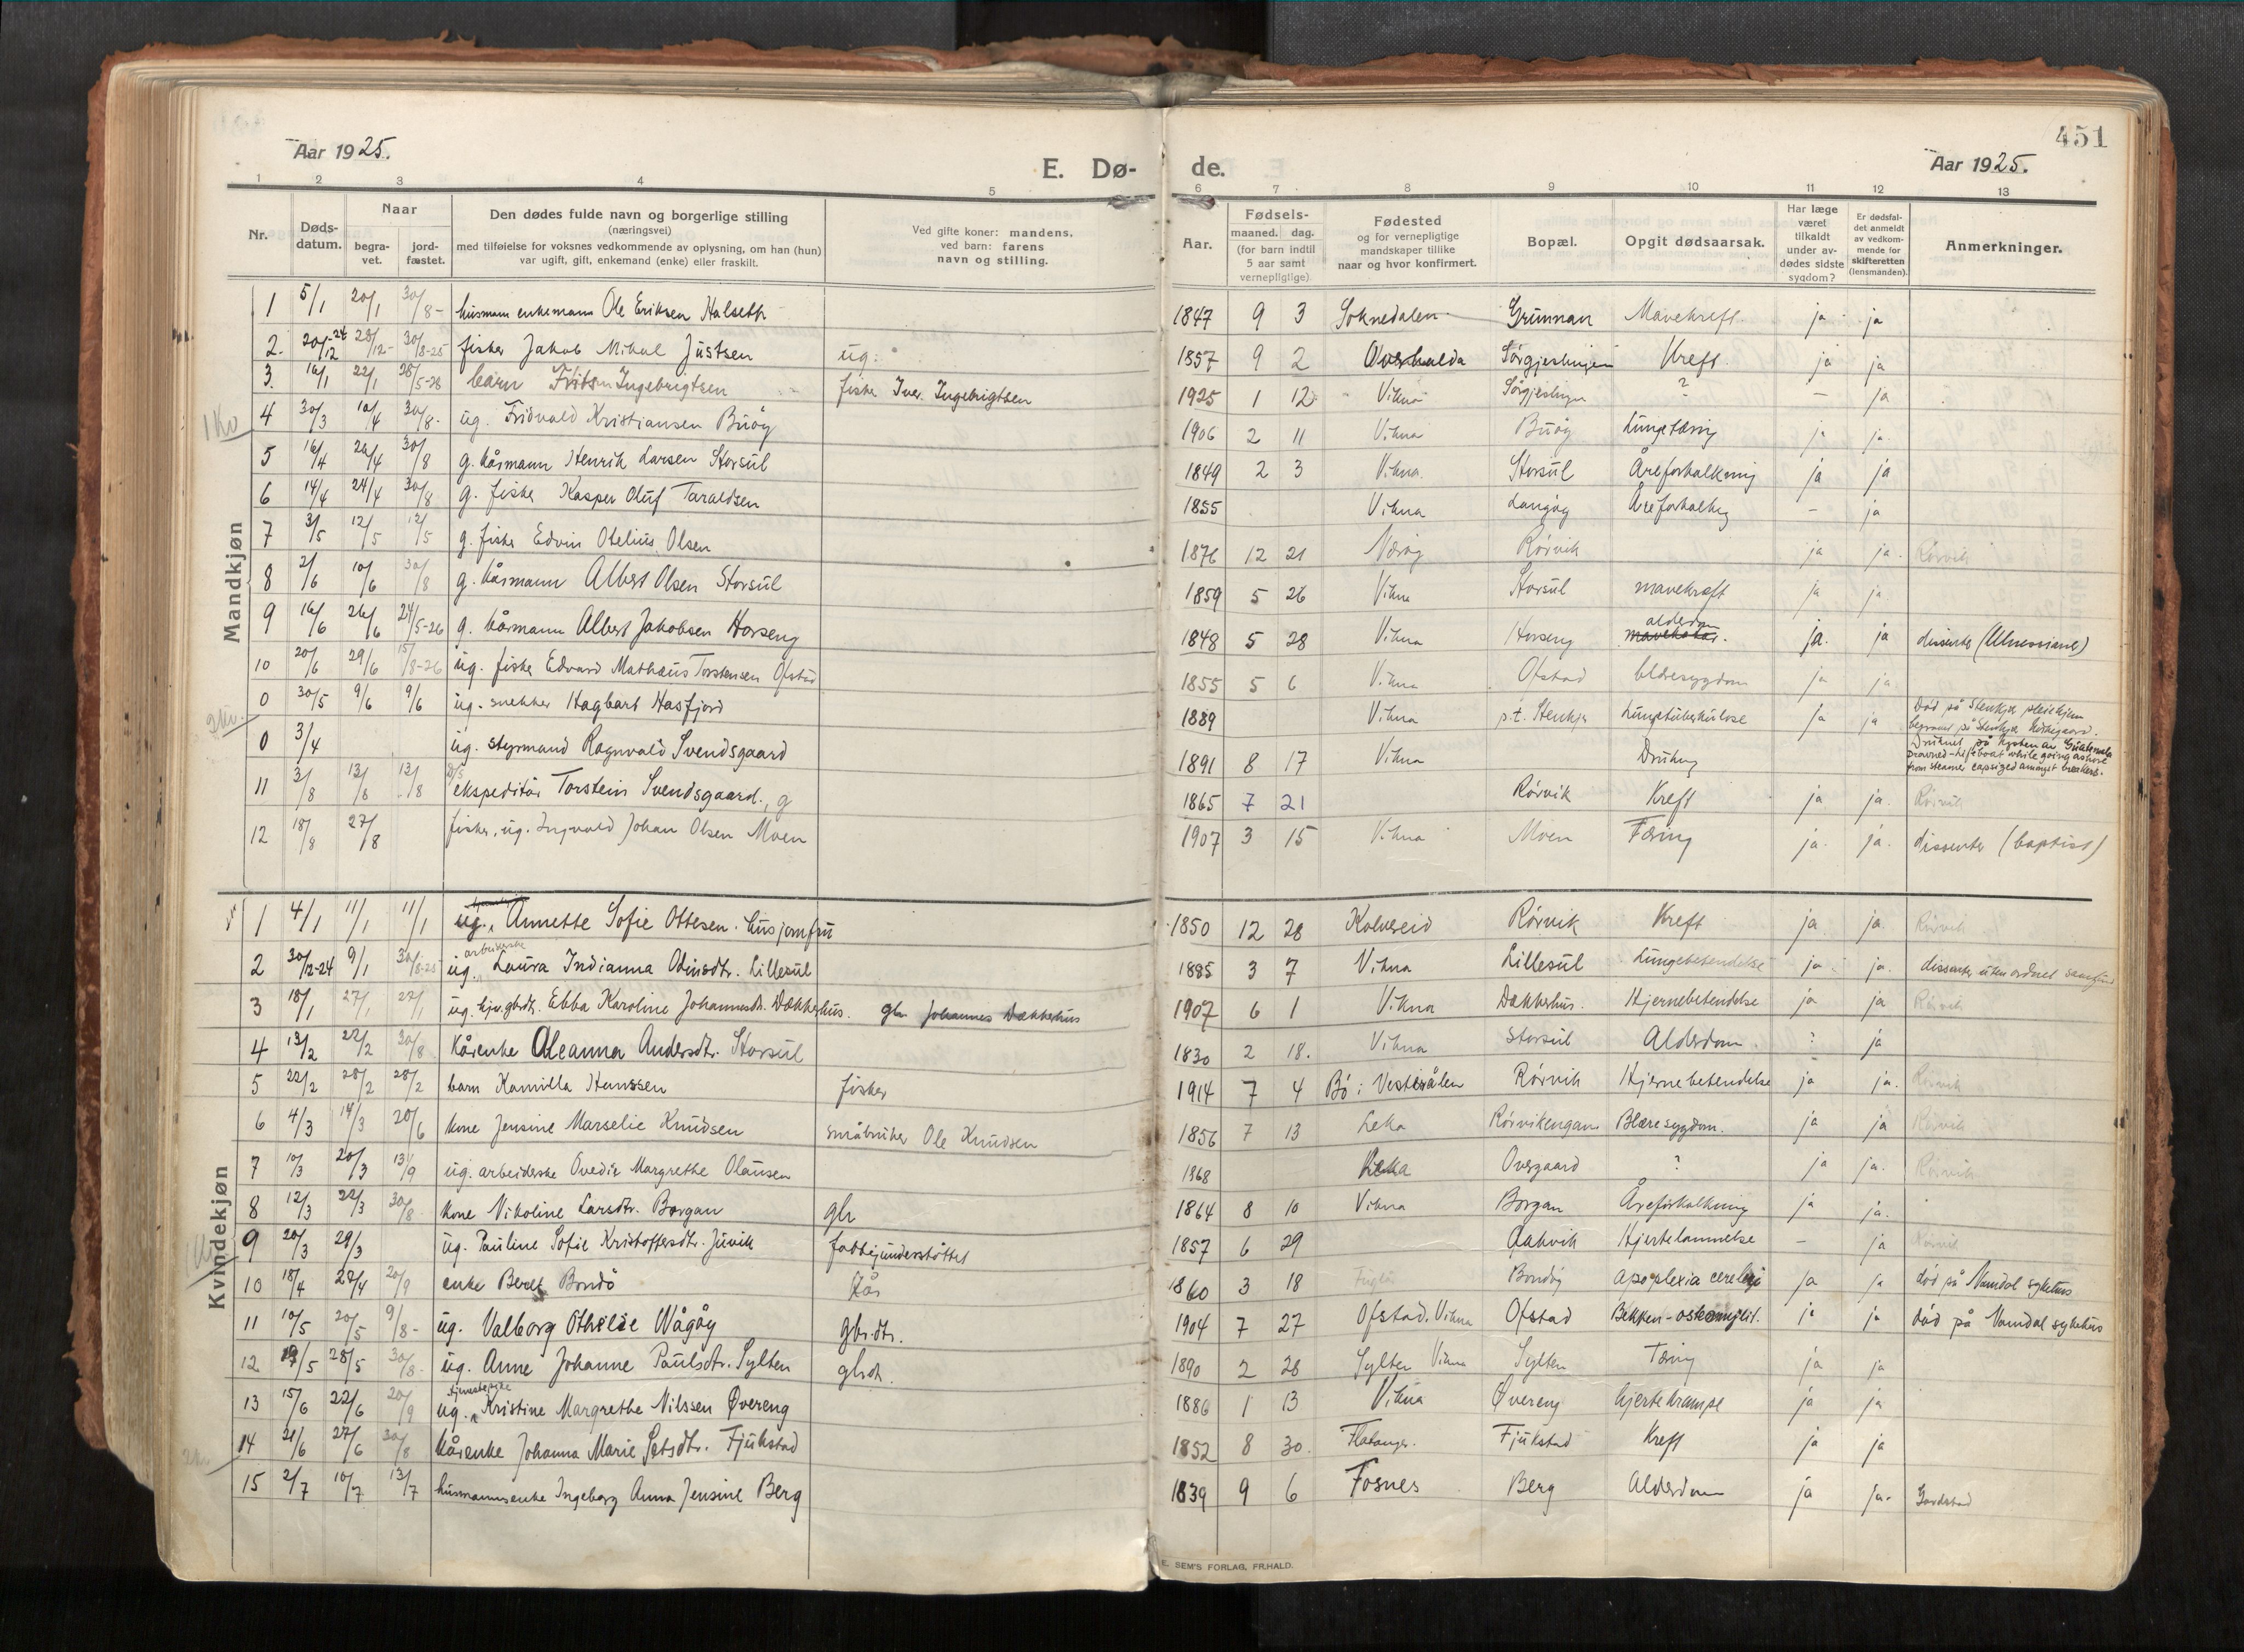 451
Aar 1925.
E. Dø-
de.
Aar 1925.
1 2 3 4 5 6 7 8 9 10 11 12 13
Nr.
Døds-
datum.
Naar
begra-
vet.
jord-
fæstet.
Den dødes fulde navn og borgerlige stilling
(næringsvei)
med tilføielse for voksnes vedkommende av oplysning, om han (hun)
var ugift, gift, enkemand (enke) eller fraskilt.
Ved gifte koner: mandens.
ved barn: farens
navn og stilling.
Aar.
Fødsels-
maaned. dag.
(for barn indtil
5 aar samt
vernepligtige)
Fødested
og for vernepligtige
mandskaper tillike
naar og hvor konfirmert.
Bopæl.
Opgit dødsaarsak.
Har læge
været
tilkaldt
under av-
dødes sidste
sygdom?
Er dødsfal-
det anmeldt
av vedkom-
mende for
skifteretten
(lensmanden).
Anmerkninger.
Mandkjøn
1 5/1 20/1 30/8- husmann enkemann Ole Eriksen Halseth 1847 9 3 Soknedalen Grunnan Mavekreft. ja ja
2. 20/12-24 28/12- 30/8-25 fisker Jakob Mikal Justsen ug. 1857 9 2 Overhalla Sørgjeslingen Kreft. ja ja
3. 16/1 22/1 28/5-28 barn Ingebrigtsen fisker Iver Ingebrigtsen 1925 1 12 Vikna Sørgjeslingen ? – ja
4 30/3 10/4 30/8- ug. Fridvald Kristiansen Buøy 1906 2 11 Vikna Buøy Lungetæring ja ja.
5 16/4 26/4 30/8 g. kårmann Henrik Larsen Storsul 1849 2 3 Vikna. Storsul Åreforkalkning ja ja
6 14/4 24/4 30/8 g. fisker Kasper Oluf Taraldsen 1855 Vikna Langøy Åreforkalkng – ja
7 3/5 12/5 12/5 g. fisker Edvin Otelius Olsen 1876 12 21 Nærøy Rørvik ja ja. Rørvik
8 2/6 10/6 30/8 g. kårmann Albert Olsen Storsul 1859 5 26 Vikna Storsul mavekreft ja ja
9 16/6 26/6 24/5-26 g. kårmann Albert Jakobsen Horseng 1848 5 28 Vikna Horseng alderdom ja. ja dissenter
10 20/6 29/6 15/8-26 ug. fisker Edvard Mathæus Torstensen Ofstad 1855 5 6 Vikna Ofstad blæresygdom ja ja
0 30/5 9/6 9/6 ug. snekker Hagbart Hasfjord 1889 Vikna p.t. Stenkjer Lungetuberkulose ja ja Død på Stenkjer pleiehjem
begravet på Stenkjer kirkegaard.
0 3/4 ug. styrmand Ragnvald Svendsgaard 1891 8 17 Vikna Drukng Druknet på kysten av Guatemala
Drowned-lifeboat while going ashore
from steamer capsized amongst breakers.
11 3/8 13/8 13/8 ekspeditør Torstein Svendsgaard., g 1865 7 21 Rørvik Kreft ja ja. Rørvik
12 18/8 27/8 fisker, ug. Ingvald Johan Olsen Moen 1907 3 15 Vikna Moen Tæring ja. ja. dissenter (baptist)
Kvindekjøn
1 4/1 11/1 11/1 ug. Annette Sofie Ottesen. husjomfru 1850 12 28 Kolvereid Rørvik Kreft ja. ja. Rørvik
2 30/12-24 9/1 30/8-25 ug. arbeiderske Laura Indianna Odinsdtr. Lillesul 1885 3 7 Vikna Lillesul Lungebetendelse ja ja. dissenter uten ordnet samfund
3 18/1 27/1 27/1 ug. hjv. gbrdtr. Ebba Karoline Johannesdtr. Dækkerhus. gbr Johannes Dækkerhus 1907 6 1 Vikna Dækkerhus. Hjernebetendelse ja ja Rørvik
4 13/2 22/2 30/8 kårenke Oleanna Andersdtr. Storsul 1830 2 18. Vikna Storsul Alderdom ? ja
5 22/2 28/2 28/2 barn Kamilla Hanssen fisker 1914 7 4 Bø i Vesterålen Rørvik Hjernebetendelse ja ja. Rørvik
6 4/3 14/3 20/6 kone Jensine Marselie Knudsen småbruker Ole Knudsen 1856 7 13 Leka Rørvikengan Blæresygdom. ja ja Rørvik
7 10/3 20/3 13/9 ug. arbeiderske Ovedie Margrethe Olausen 1868 Leka Overgaard ? ja ja. Rørvik
8 12/3 22/3 30/8 kone Nikoline Larsdtr. Borgan gbr 1864 8 10 Vikna Borgan Åreforkalkning ja ja.
9 20/3 29/3 ug. Pauline Sofie Kristoffersdtr. Juvik fattigunderstøttet 1857 6 29 Aakvik Hjertelammelse – ja Rørvik
10 18/4 28/4 20/9 enke Beret Bondø Kår 1860 3 18 Bondøy apoplexia cerebri ja ja død på Namdal sykehus
11 10/5 20/5 9/8- ug. Valborg Othelie Wågøy gbr.dtr. 1904 7 27 Ofstad. Vikna Ofstad Bekken-osteomyelit. ja ja død på Namdal sykehus
12 19/5 28/5 30/8- ug. Anne Johanne Paulsdtr. Sylten gbrdtr. 1890 2 28 Sylten Vikna Sylten Tæring ja ja
13 15/6 22/6 20/9 ug. tjenestepike Kristine Margrethe Nilssen Øvereng 1886 1 13 Vikna Øvereng hjertekrampe ja ja
14 21/6 27/6 30/8 kårenke Johanna Marie Petsdtr. Fjukstad 1852 8 30. Flatanger. Fjukstad Kreft ja ja
15 2/7 10/7 13/7 husmannsenke Ingeborg Anna Jensine Berg 1839 9 6 Fosnes Berg Alderdom ja ja. Gardstad
E. SEM'S FORLAG, FR.HALD.